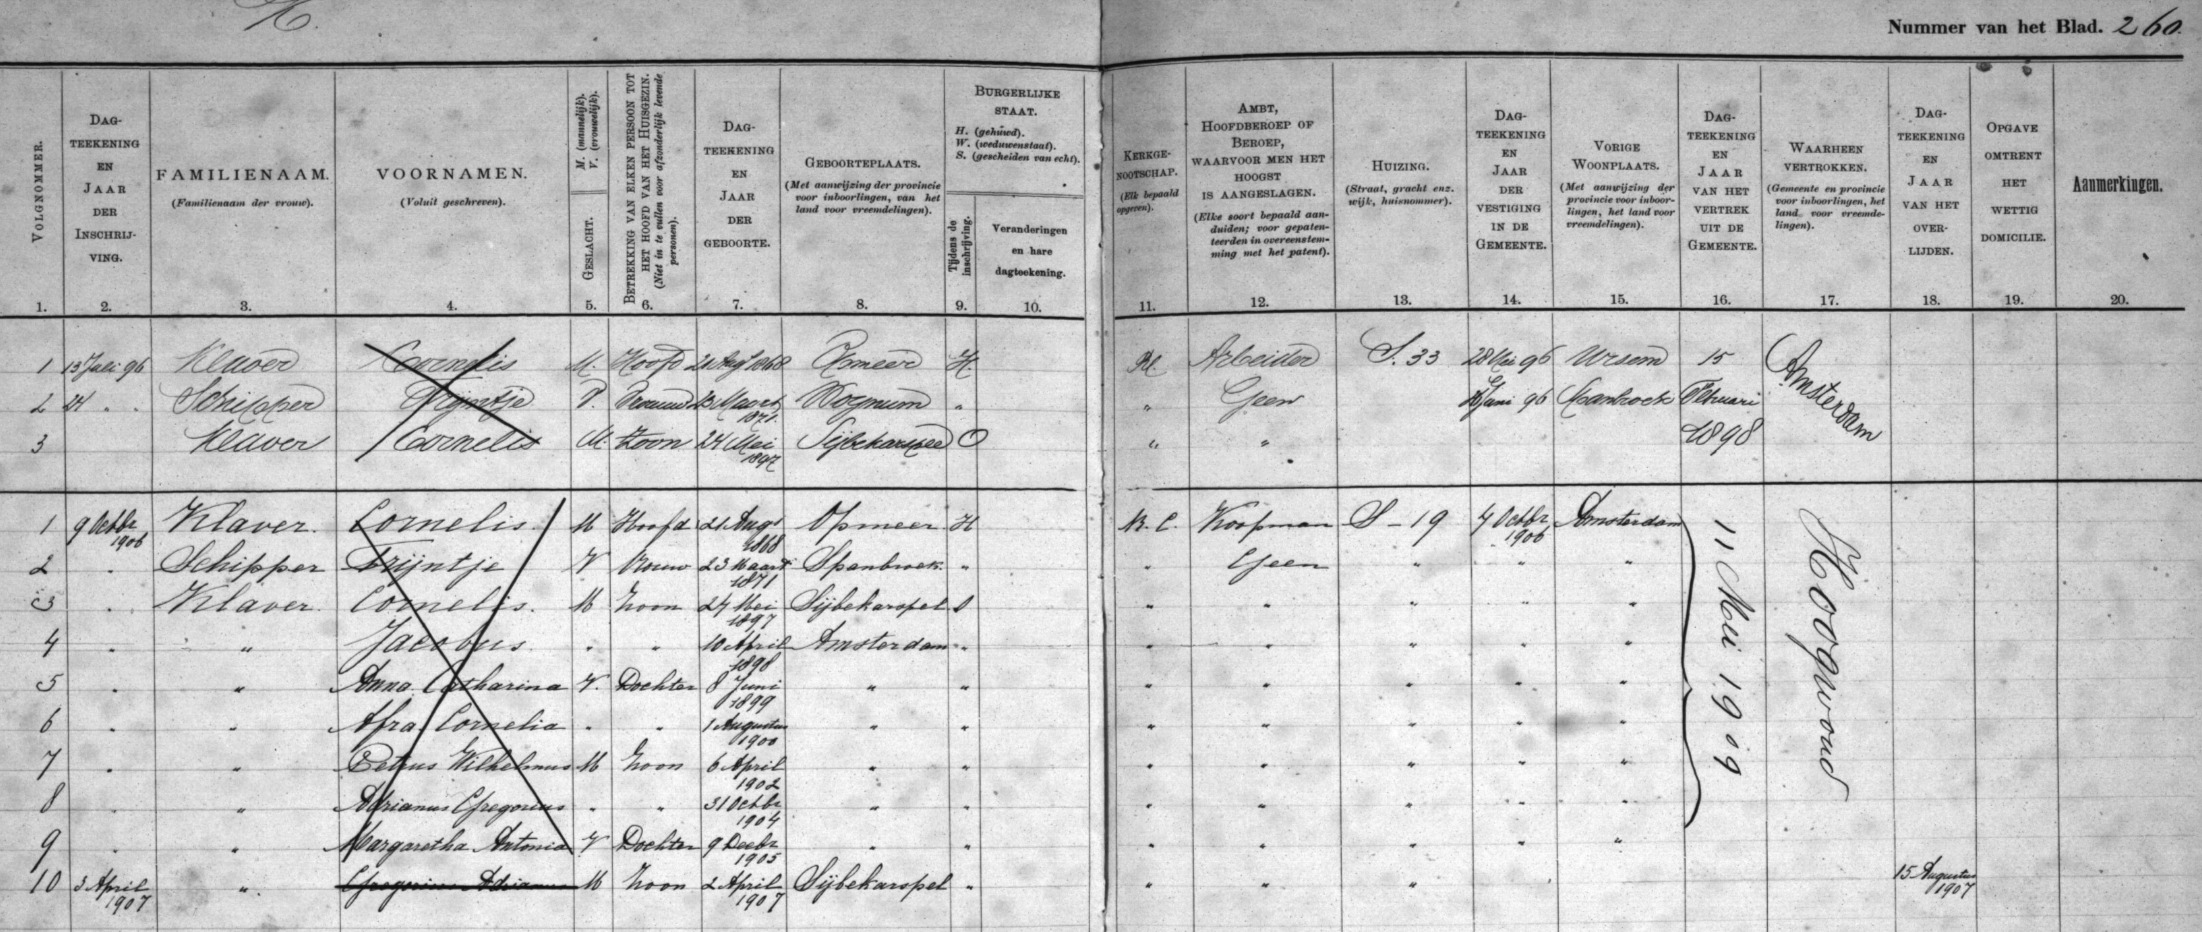 K.
Nummer van het Blad. 260.
VOLGNOMMER.
1.
DAG-
TEEKENING
EN
JAAR
DER
INSCHRIJ-
VING.
2.
FAMILIENAAM.
(Familienaam der vrouw).
3.
VOORNAMEN.
(Voluit geschreven).
4.
M. (mannelijk).
V. (vrouwelijk).
GESLACHT.
5.
BETREKKING VAN ELKEN PERSOON TOT
HET HOOFD VAN HET HUISGEZIN.
(Niet in te vullen voor afzonderlijk levende
personen).
6.
DAG-
TEEKENING
EN
JAAR
DER
GEBOORTE.
7.
GEBOORTEPLAATS.
(Met aanwijzing der provincie
voor inboorlingen, van het
land voor vreemdelingen).
8.
BURGERLIJKE
STAAT.
H. (gehuwd).
W. (weduwenstaat).
S. (gescheiden van echt).
Tijdens de
inschrijving.
9.
Veranderingen
en hare
dagteekening.
10.
KERKGE-
NOOTSCHAP.
(Elk bepaald
opgeven).
11.
AMBT,
HOOFDBEROEP OF
BEROEP,
WAARVOOR MEN HET
HOOGST
IS AANGESLAGEN.
(Elke soort bepaald aan-
duiden; voor gepaten-
teerden in overeenstem-
ming met het patent).
12.
HUIZING.
(Straat, gracht enz.
wijk, huisnommer).
13.
DAG-
TEEKENING
EN
JAAR
DER
VESTIGING
IN DE
GEMEENTE.
14.
VORIGE
WOONPLAATS.
(Met aanwijzing der
provincie voor inboor-
lingen, het land voor
vreemdelingen).
15.
DAG-
TEEKENING
EN
JAAR
VAN HET
VERTREK
UIT DE
GEMEENTE.
16.
WAARHEEN
VERTROKKEN.
(Gemeente en provincie
voor inboorlingen, het
land voor vreemde-
lingen).
17.
DAG-
TEEKENING
EN
JAAR
VAN HET
OVER-
LIJDEN.
18.
OPGAVE
OMTRENT
HET
WETTIG
DOMICILIE.
19.
Aanmerkingen.
20.
1 13 Juli 96 Klaver Cornelis M. Hoofd 21 Aug 1868 Opmeer H. Arbeider S. 33 28 Mei 96 Ursem 15
2 " " Schipper Trijntje V. Vrouw 23 Maart 1871. Wognum " " Geen Juni 96 Februari
3 Klaver Cornelis M. Zoon 24 Mei 1897 Sijbekarspel O " " 1898
Amsterdam
1 9 Octbr 1906 Klaver. Cornelis. M Hoofd 21 Augs 1868 Opmeer H R. C. Koopman S - 19 7 Octbr 1906 Amsterdam
2 " Schipper Trijntje V Vrouw 23 Maart 1871 Spanbroek. " " Geen " " "
3 " Klaver. Cornelis. M Zoon 24 Mei 1897 Sijbekarspel O " " " " "
4 " " Jacobus. " " 10 April 1898 Amsterdam " " " " " "
5 " " Anna Catharina V. Dochter 8 Juni 1899 " " " " " " "
6 " " Afra Cornelia " " 1 Augustus 1900 " " " " " " "
7 " " Petrus Wilhelmus M Zoon 6 April 1902 " " " " " " "
8 " " Adrianus Gregorius " " 31 Octbr 1904 " " " " " " "
9 " " Margaretha Antonia V Dochter 9 Decbr 1905 " " " " " " "
10 3 April 1907 " Gregorius Adrianus M Zoon 2 April 1907 Sijbekarspel " " " " 15 Augustus 1907
11 Mei 1909
Hoogwoud